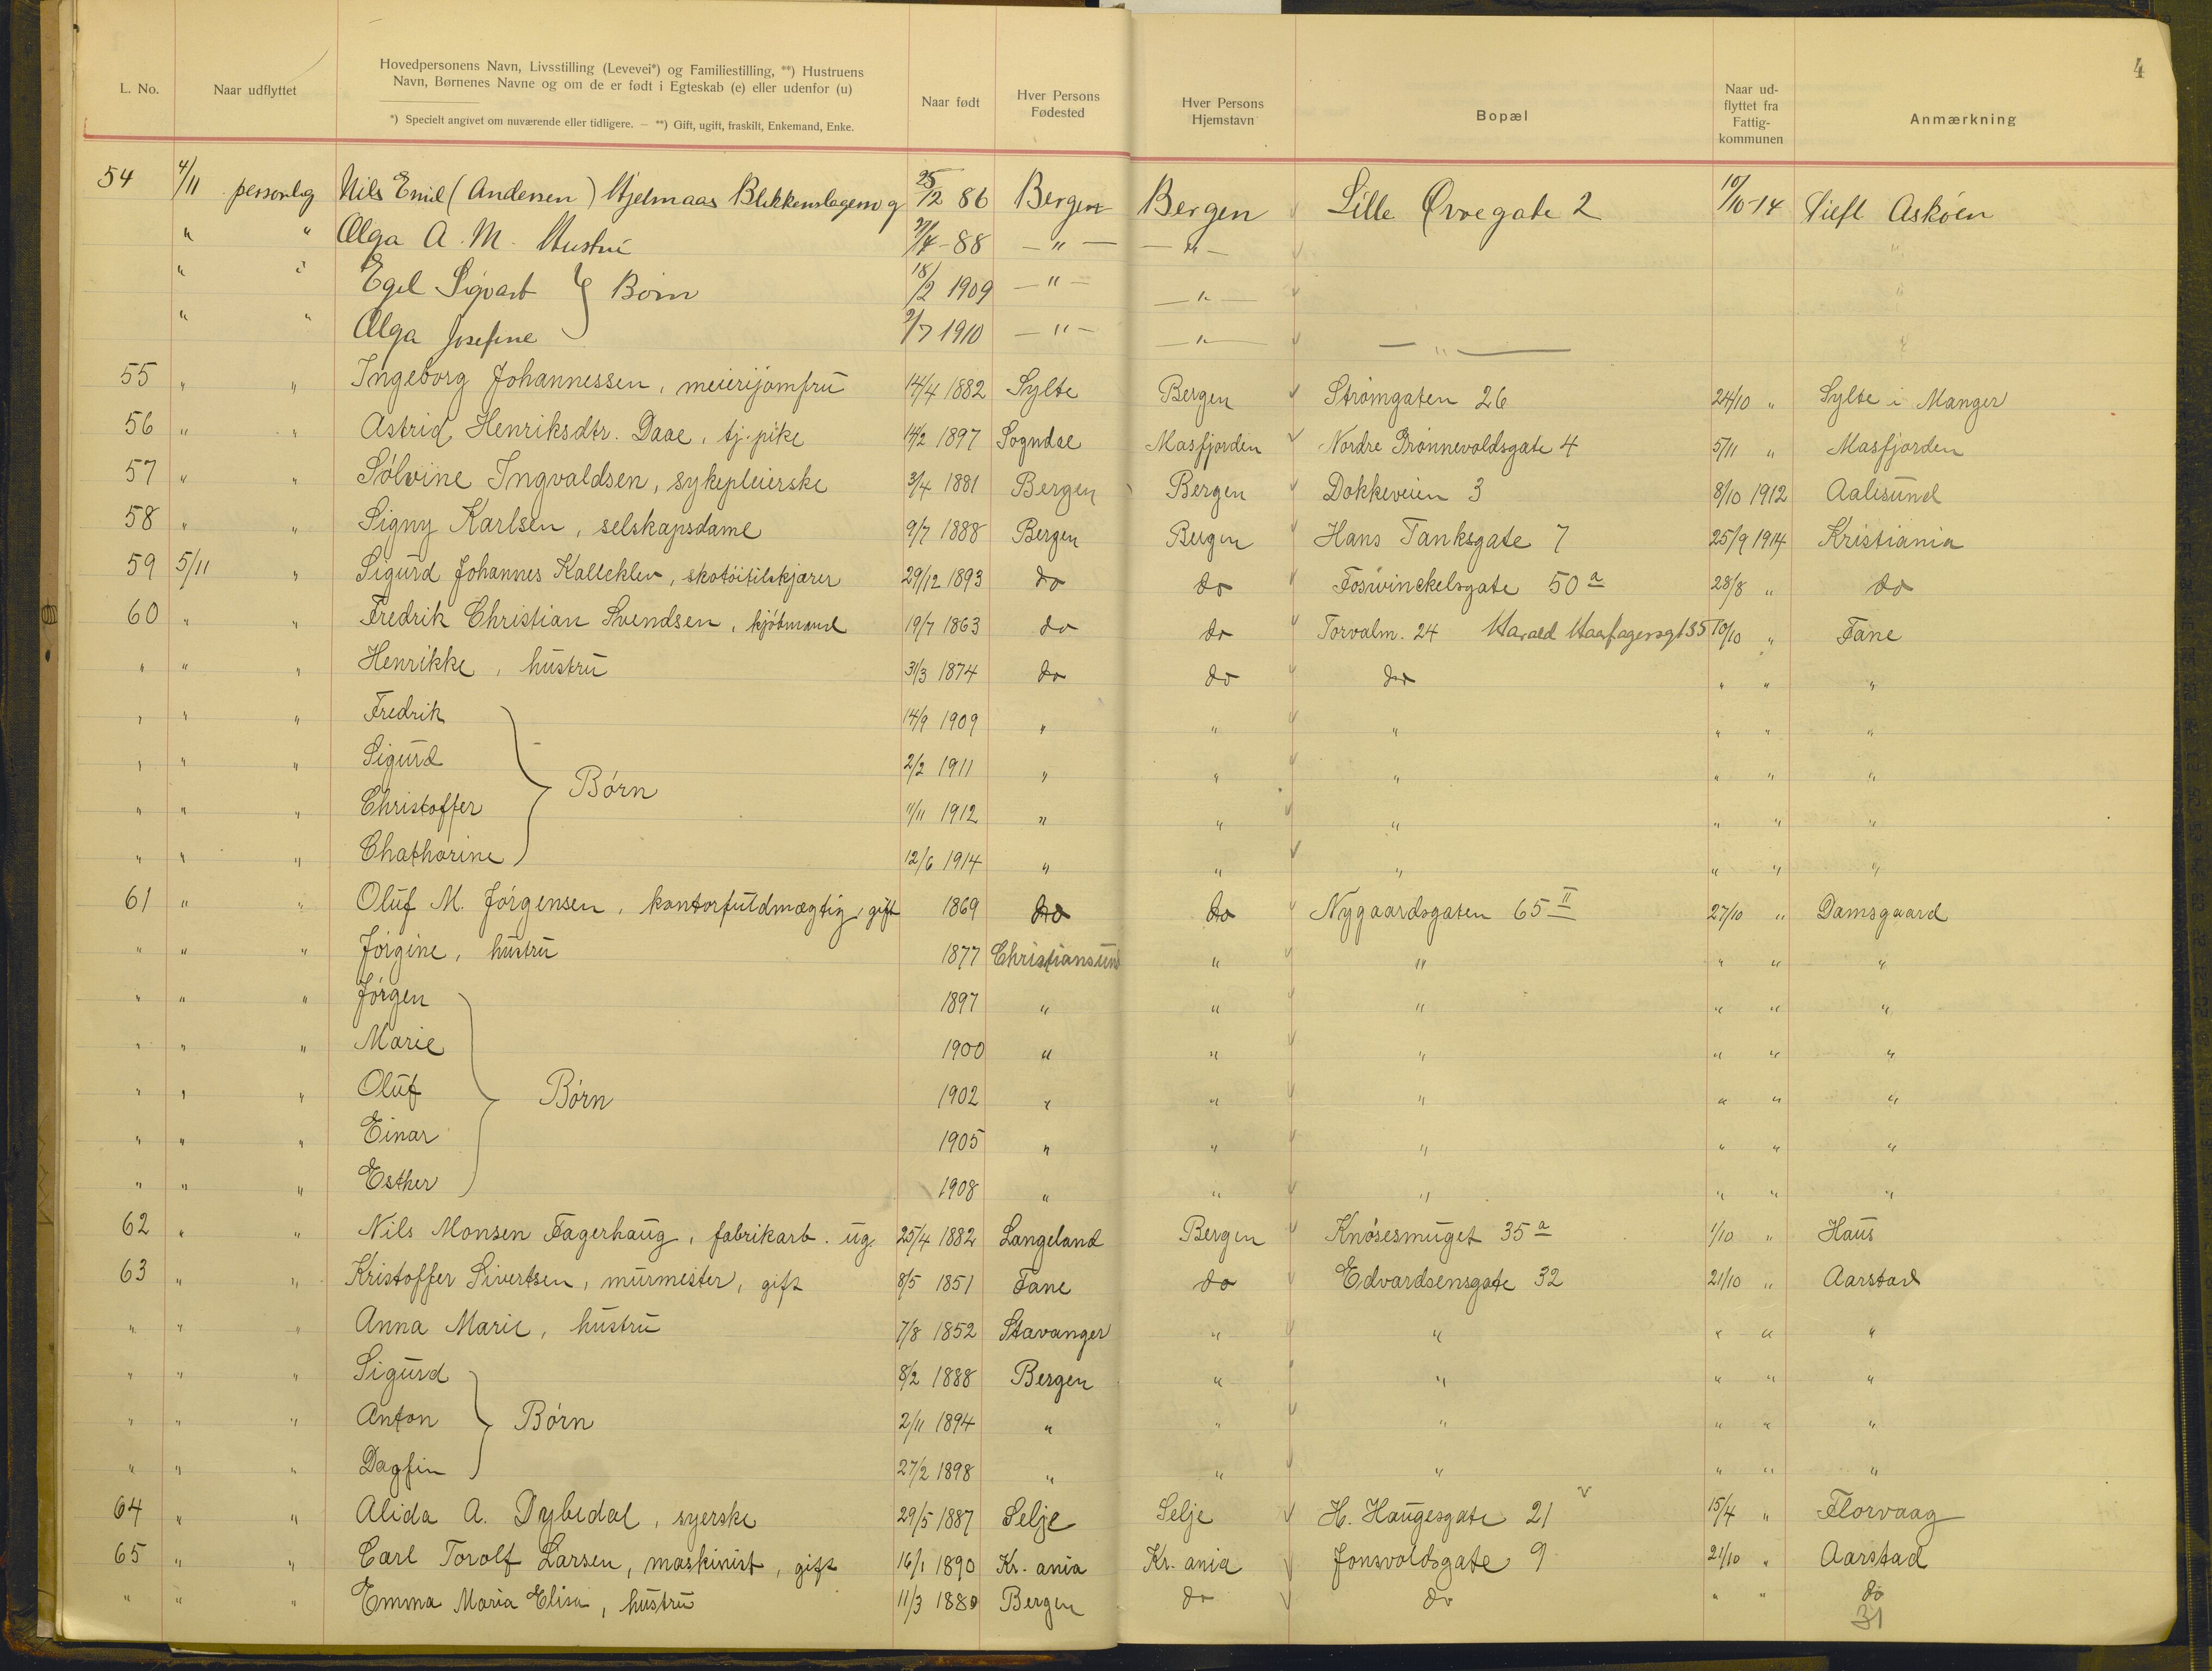 4
L. No.
Naar udflyttet
Hovedpersonens Navn, Livsstilling (Levevei*) og Familiestilling, **) Hustruens
Navn, Børnenes Navne og om de er født i Egteskab (e) eller udenfor (u)
*) Specielt angivet om nuværende eller tidligere. — **) Gift, ugift, fraskilt, Enkemand, Enke.
Naar født
Hver Persons
Fødested
Hver Persons
Hjemstavn
Bopæl
Naar ud-
flyttet fra
Fattig-
kommunen
Anmærkning
54 4/11 personlig Nils Emil (Andersen) Hjelmaas Blikkenslagersv g 25/2 86 Bergen Bergen Lille Øvregate 2 10/10-14 Askøen
" " Olga A. M. Hustru 27/4-88 — " — — " — "
" " Egel Sigvart } Børn 18/2 1909 — " — — " — "
" " Olga Josefine 9/7 1910 — " — — " — — " — "
55 " " Ingeborg Johannessen, meierijomfru 14/4 1882 Sylte Bergen Strømgaten 26 24/10 " Sylte i Manger
56 " " Astrid Henriksdtr. Daae, tj. pike 14/2 1897 Sogndal Masfjorden Nordre Grønnevoldsgate 4 5/11 " Masfjorden
57 " " Sølvine Ingvaldsen, sykepleierske 3/4 1881 Bergen Bergen Dokkeveien 3 8/10 1912 Aalesund
58 " " Signy Karlsen, selskapsdame 9/7 1888 Bergen Bergen Hans Tanksgate 7 25/9 1914 Kristiania
59 5/11 " Sigurd Johannes Kalleklev, skotöitilskjærer 29/12 1893 do do Fosswinckelsgate 50 a 28/8 " do
60 " " Fredrik Christian Svendsen, kjöbmand 19/7 1863 do do Torvalm. 24 Harald Haarfagersgt 35 10/10 " Fane
" " " Henrikke, hustru 31/3 1874 do do do " " "
" " " Fredrik 14/9 1909 " " " " " "
" " " Sigurd 2/2 1911 " " " " " "
Børn
" " " Christoffer 11/11 1912 " " " " " "
" " " Chatharine 12/6 1914 " " " " " "
61 " " Oluf M. Jörgensen, kontorfuldmægtig, gift 1869 do do Nygaardsgaten 65 II 27/10 " Damsgaard
" " " Jörgine, hustru 1877 Christiansund " " " " "
" " " Jörgen 1897 " " " " " "
" " " Marie 1900 " " " " " "
" " " Oluf } Børn 1902 " " " " " "
" " " Einar 1905 " " " " " "
" " " Esther 1908 " " " " " "
62 " " Nils Monsen Fagerhaug, fabrikarb. ug. 25/4 1882 Langeland Bergen Knösesmuget 35 a 1/10 " Haus
63 " " Kristoffer Sivertsen, murmester, gift 8/5 1851 Fane do Edvardsensgate 32 21/10 " Aarstad
" " " Anna Marie, hustru 7/8 1852 Stavanger " " " " "
" " " Sigurd 8/2 1888 Bergen " " " " "
" " " Anton } Børn 2/11 1894 " " " " " "
" " " Dagfin 27/2 1898 " " " " " "
64 " " Alida A. Dybedal, syerske 29/5 1887 Selje Selje H. Haugesgate 21 15/4 " Florvaag
65 " " Carl Torolf Larsen, maskinist, gift 16/1 1890 Kr. ania Kr. ania Jonsvoldsgate 9 21/10 " Aarstad
" " " Emma Maria Elisa, hustru 11/3 1880 Bergen do do " " do
31